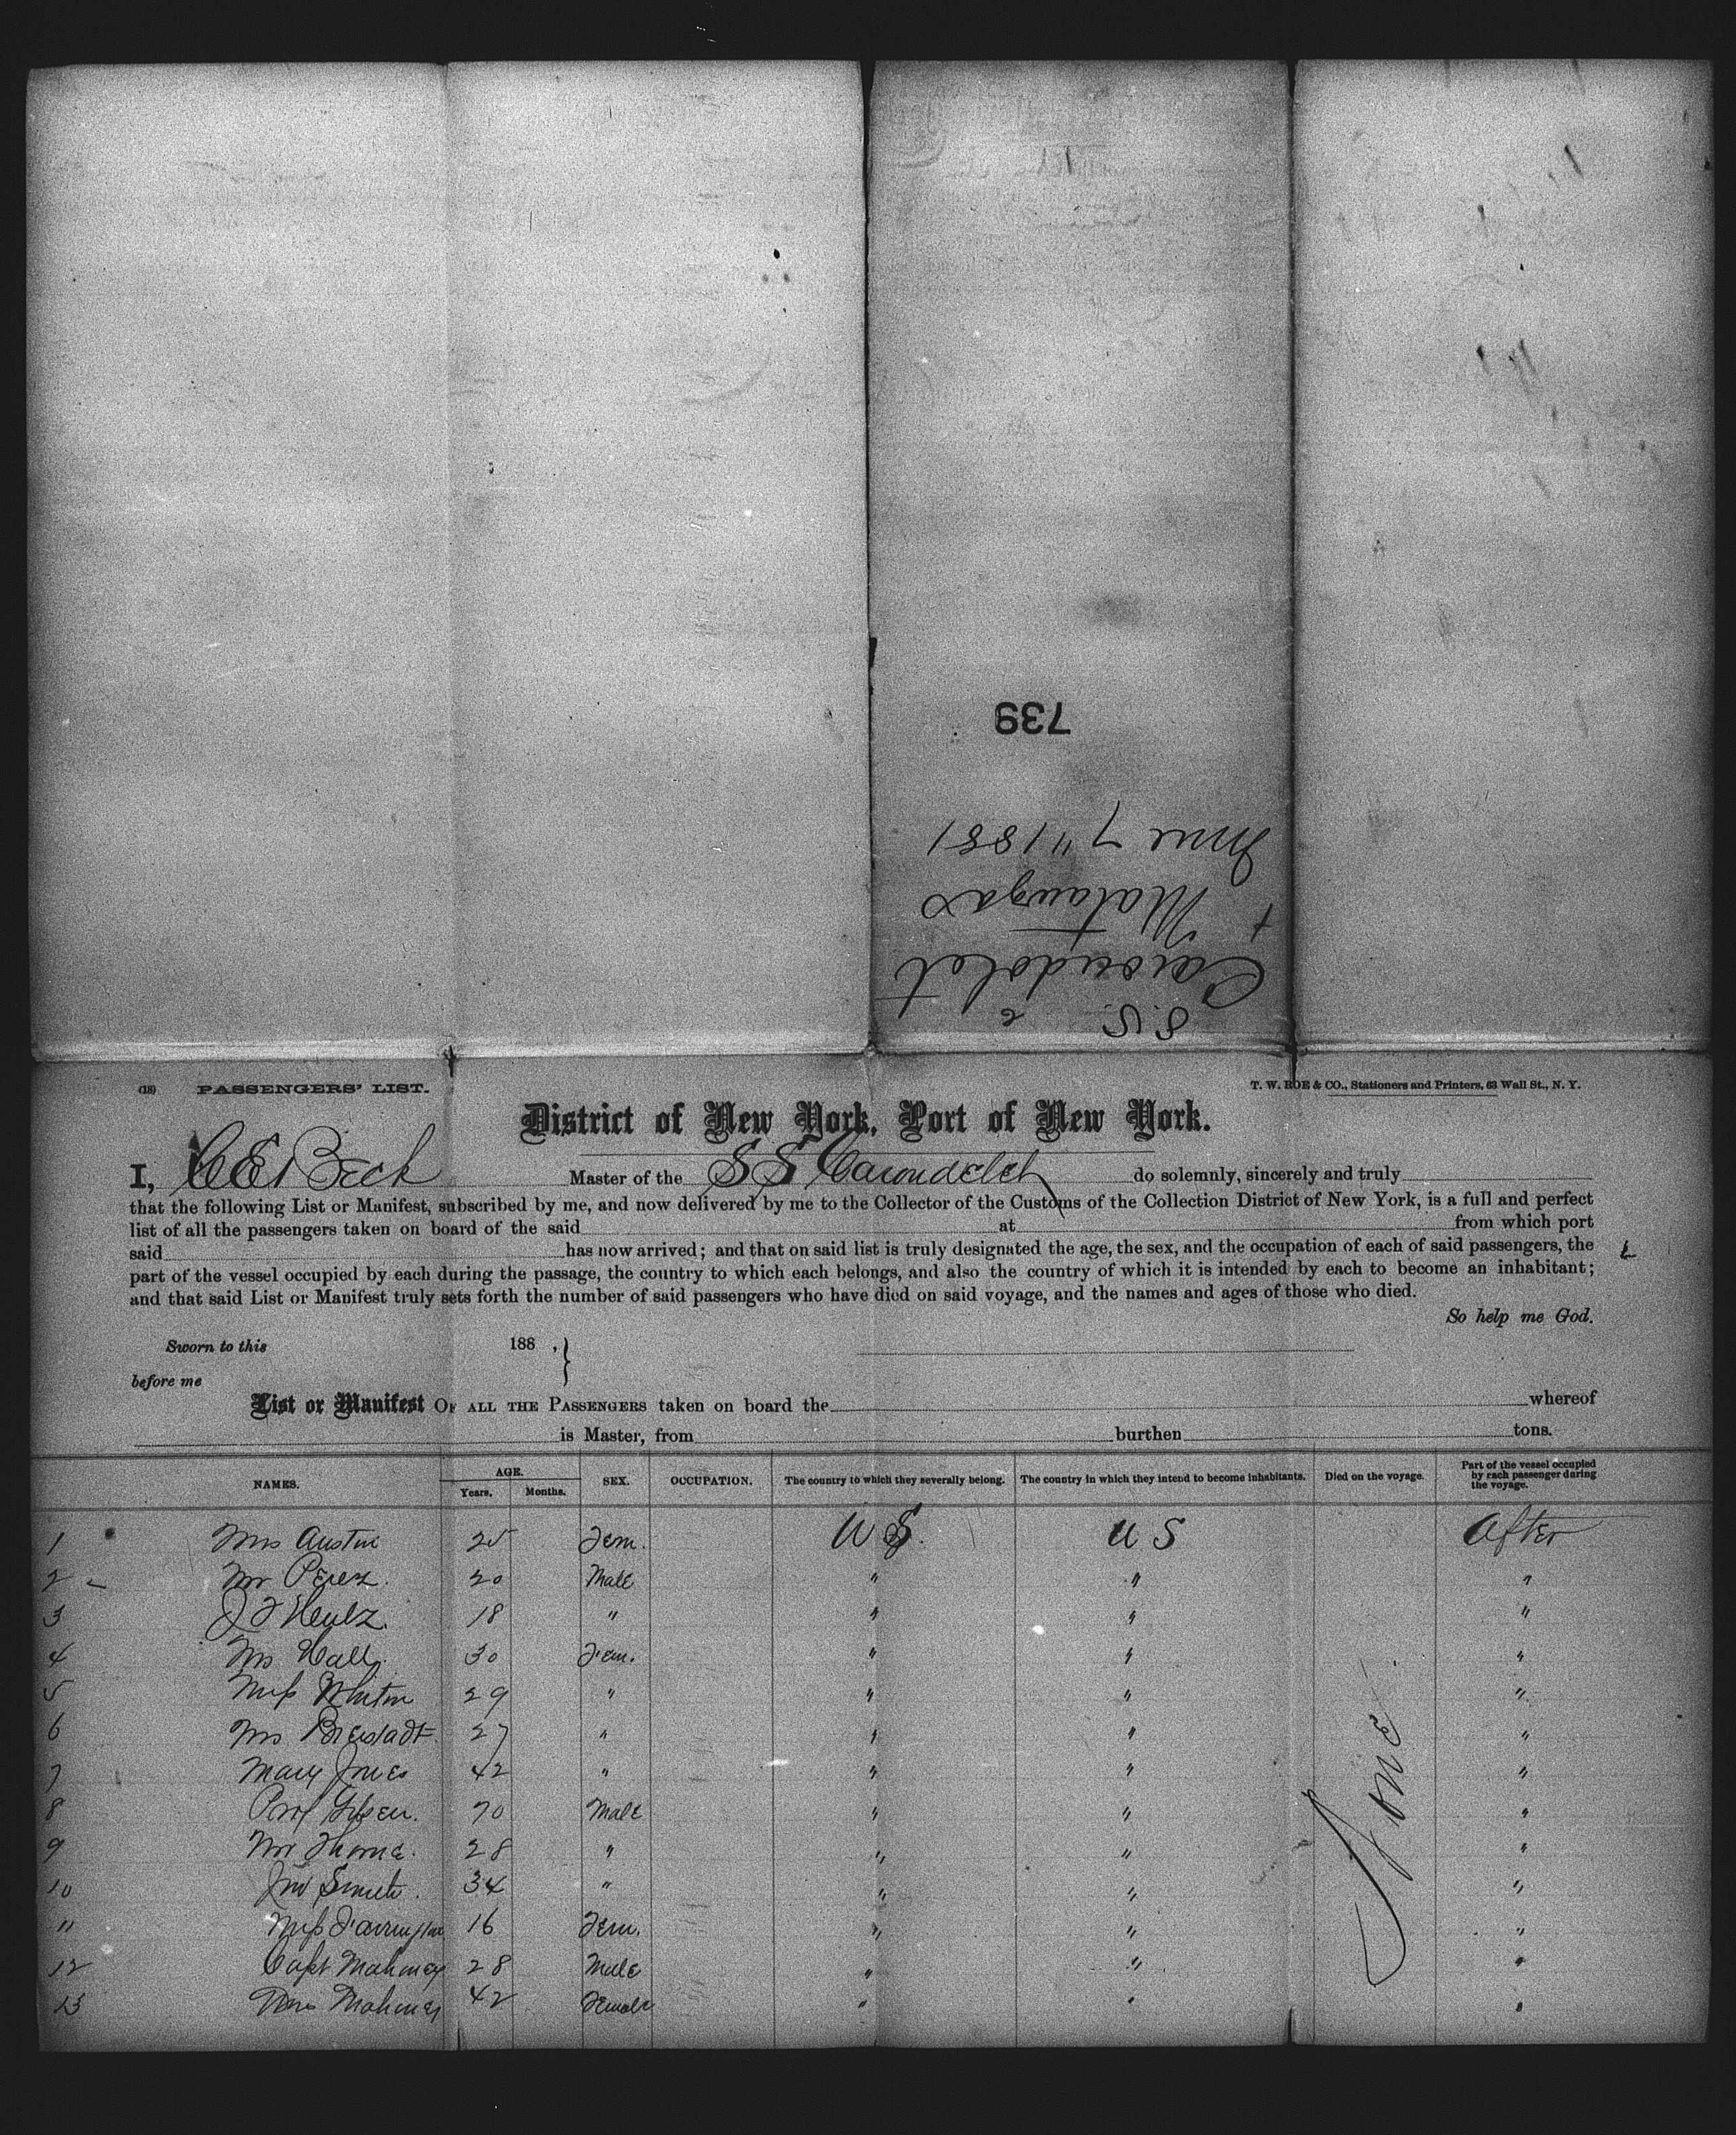 739
June 7" 1881
Matanzas
+
Carondelet
S.S.
(18) PASSENGERS' LIST.
T. W. ROE & CO., Stationers and Printers, 63 Wall St., N. Y.
District of New York, Port of New York.
I, Master of the S S Carondelet do solemnly, sincerely and truly
that the following List or Manifest, subscribed by me, and now delivered by me to the Collector of the Customs of the Collection District of New York, is a full and perfect
list of all the passengers taken on board of the said at from which port
said has now arrived; and that on said list is truly designated the age, the sex, and the occupation of each of said passengers, the
part of the vessel occupied by each during the passage, the country to which each belongs, and also the country of which it is intended by each to become an inhabitant;
and that said List or Manifest truly sets forth the number of said passengers who have died on said voyage, and the names and ages of those who died.
So help me God.
Sworn to this 188 ,
before me
List or Manifest OF ALL THE PASSENGERS taken on board the whereof
is Master, from burthen tons.
NAMES. AGE. Years. Months. SEX. OCCUPATION. The country to which they severally belong. The country in which they intend to become inhabitants. Died on the voyage. Part of the vessel occupied by each passenger during the voyage.
1 Mrs Austin 25 Fem. U S. U S After
2 - Mr Perez. 20 Male " " "
3 18 " " " "
4 Mrs Hall. 30 Fem. " " "
5 Miss 29 " " " "
6 Mrs Bierstadt 27 " " " "
7 Mary Jones 42 " " " "
8 Prof 70 Male " " "
9 Mr Thorne. 28 " " " "
10 Jno Smith. 34 " " " "
11 Miss Farrington 16 Fem. " " "
12 Capt Mahoney 28 Male " " "
13 Mrs Mahoney 42 Female " " "
None